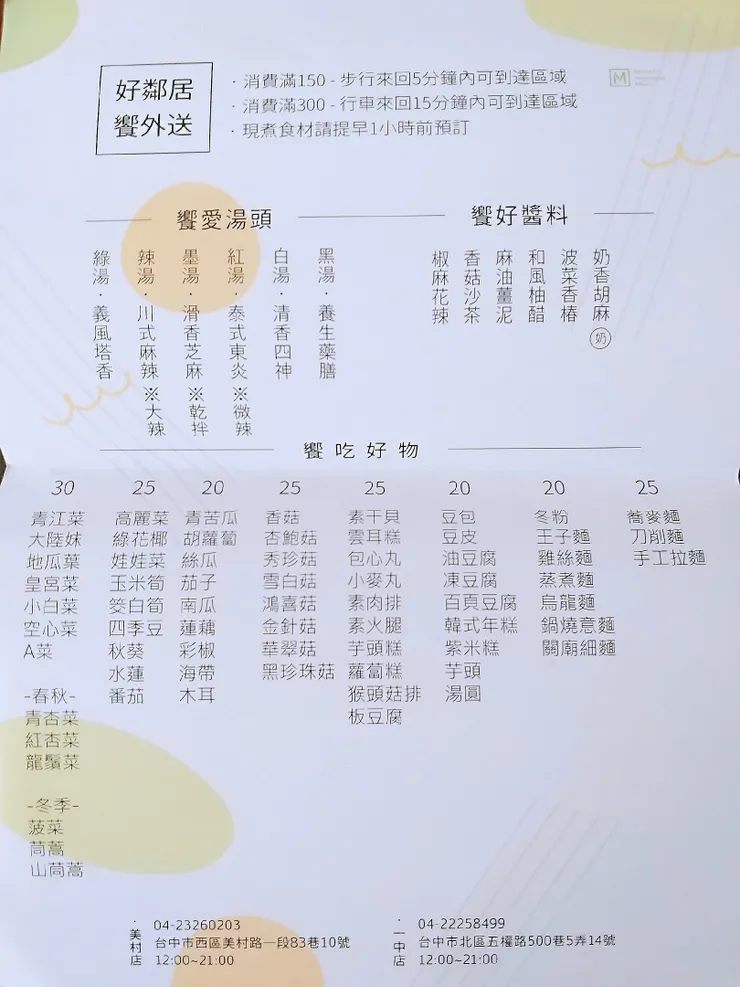 好鄰居
饗外送
· 消費滿150 - 步行來回5分鐘內可到達區域
· 消費滿300 - 行車來回15分鐘內可到達區域
· 現煮食材請提早1小時前預訂
M
饗愛湯頭
綠湯·義風塔香
辣湯·川式麻辣※大辣
墨湯·滑香芝麻※乾拌
紅湯·泰式東炎※微辣
白湯·清香四神
黑湯·養生藥膳
饗好醬料
椒麻花辣
香菇沙茶
麻油薑泥
和風柚醋
波菜香椿
奶香胡麻 奶
饗吃好物
30
青江菜
大陸妹
地瓜葉
皇宮菜
小白菜
空心菜
A菜
-春秋-
青杏菜
紅杏菜
龍鬚菜
-冬季-
菠菜
茼蒿
山茼蒿
25
高麗菜
綠花椰
娃娃菜
玉米筍
筊白筍
四季豆
秋葵
水蓮
番茄
20
青苦瓜
胡蘿蔔
絲瓜
茄子
南瓜
蓮藕
彩椒
海帶
木耳
25
香菇
杏鮑菇
秀珍菇
雪白菇
鴻喜菇
金針菇
華翠菇
黑珍珠菇
25
素干貝
雲耳糕
包心丸
小麥丸
素肉排
素火腿
芋頭糕
蘿蔔糕
猴頭菇排
板豆腐
20
豆包
豆皮
油豆腐
凍豆腐
百頁豆腐
韓式年糕
紫米糕
芋頭
湯圓
20
冬粉
王子麵
雞絲麵
蒸煮麵
烏龍麵
鍋燒意麵
關廟細麵
25
蕎麥麵
刀削麵
手工拉麵
·美村店
04-23260203
台中市西區美村路一段83巷10號
12:00~21:00
·一中店
04-22258499
台中市北區五權路500巷5弄14號
12:00~21:00